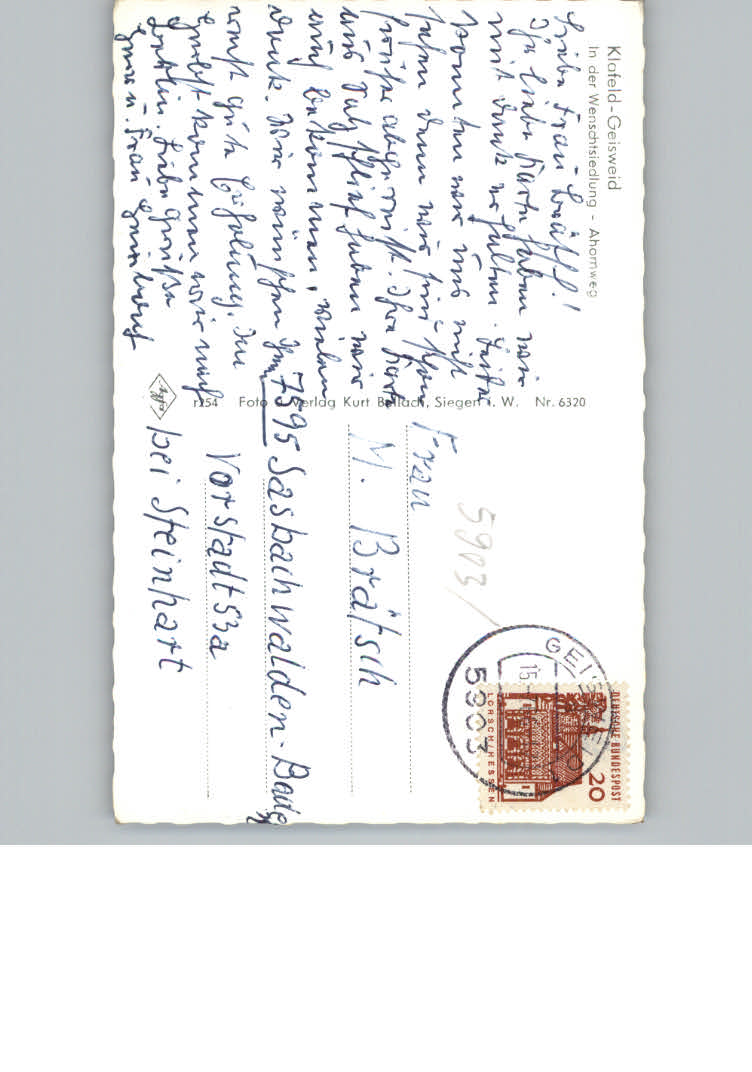 Klafeld-Geisweid
In der Wenschtsiedlung - Ahornweg
Liebe Frau
Ihre liebe Karte haben wir
mit Dank erhalten. Leider
konnten wir uns nicht
sehen denn wir sind schon
abgereist. Ihre Karte
und haben wir
auch bekommen, vielen
Dank. Wir wünschen Ihnen
noch gute Erholung. Im
Herbst kommen wir nach
Liebe Grüße
Herr u. Frau
r254 Foto u. Verlag Kurt Ballach, Siegen i. W. Nr. 6320
Agfa
Frau
M. Brätsch
7595 Sasbachwalden-Baden
Vorstadt 53a
bei Steinhart
5903/
GEISWEID
15.
5903
DEUTSCHE BUNDESPOST
20
LORSCH/HESSEN